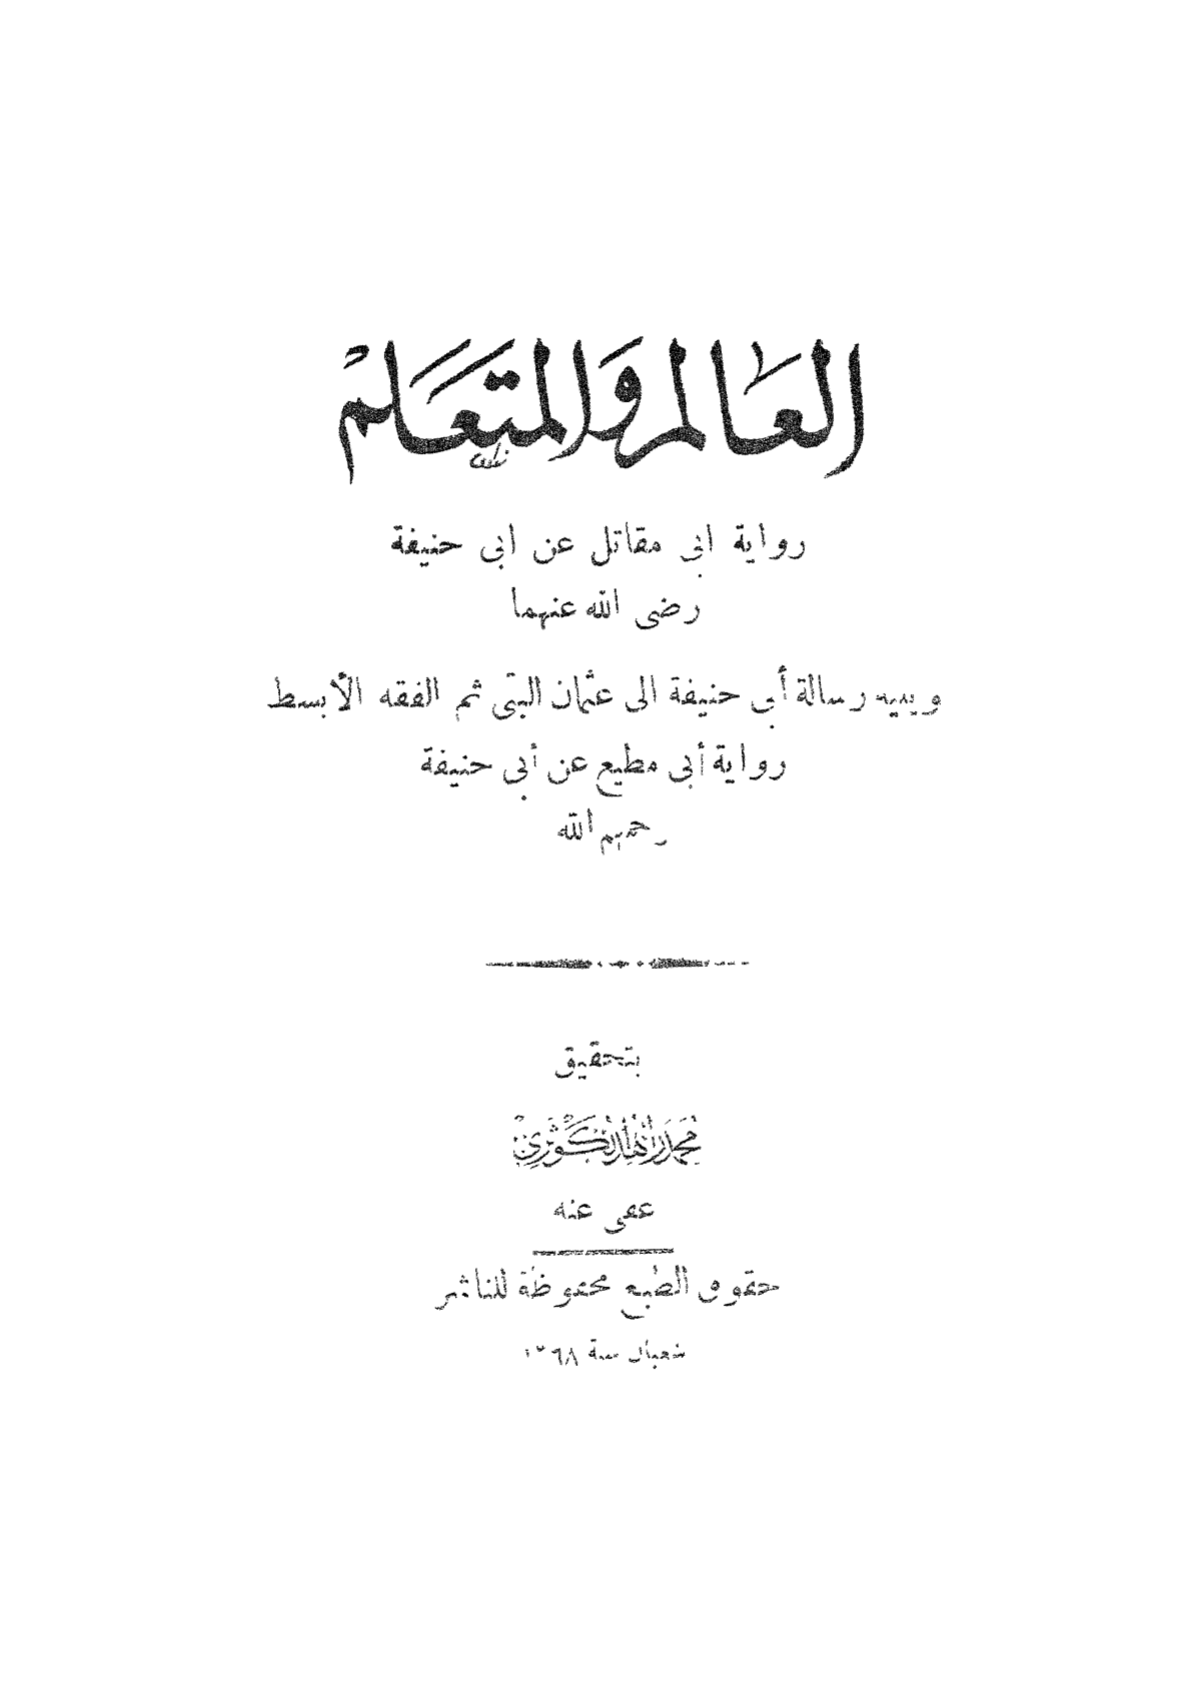 العالم والمتعلم
رواية ابى مقاتل عن ابى حنيفة
رضى الله عنهما
ويليه رسالة أبى حنيفة الى عثمان البتى ثم الفقه الأبسط
رواية أبى مطيع عن أبى حنيفة
رحمهم الله
بتحقيق
محمد زاهد الكوثرى
عفى عنه
حقوق الطبع محفوظة للناشر
شعبان سنة ١٣٦٨